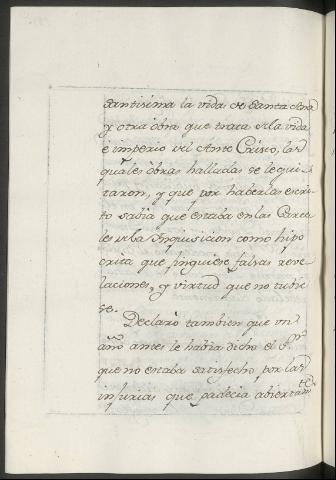 santisima la vida de Santa Ana
y otra obra que trata de la vida
é imperio del Ante Cristo, las
quales obras halladas se le qui-
taron, y que por haberlas escri-
to sabia que estaba en las Carce-
les de la Inquisicion como hipo
crita que finguiese falsas reve-
laciones, y virtud que no tubie-
se.
Declaró tambien que un
año antes le habia dicho el P.e
que no estaba satisfecho por las
injurias que padecia abiertam.te